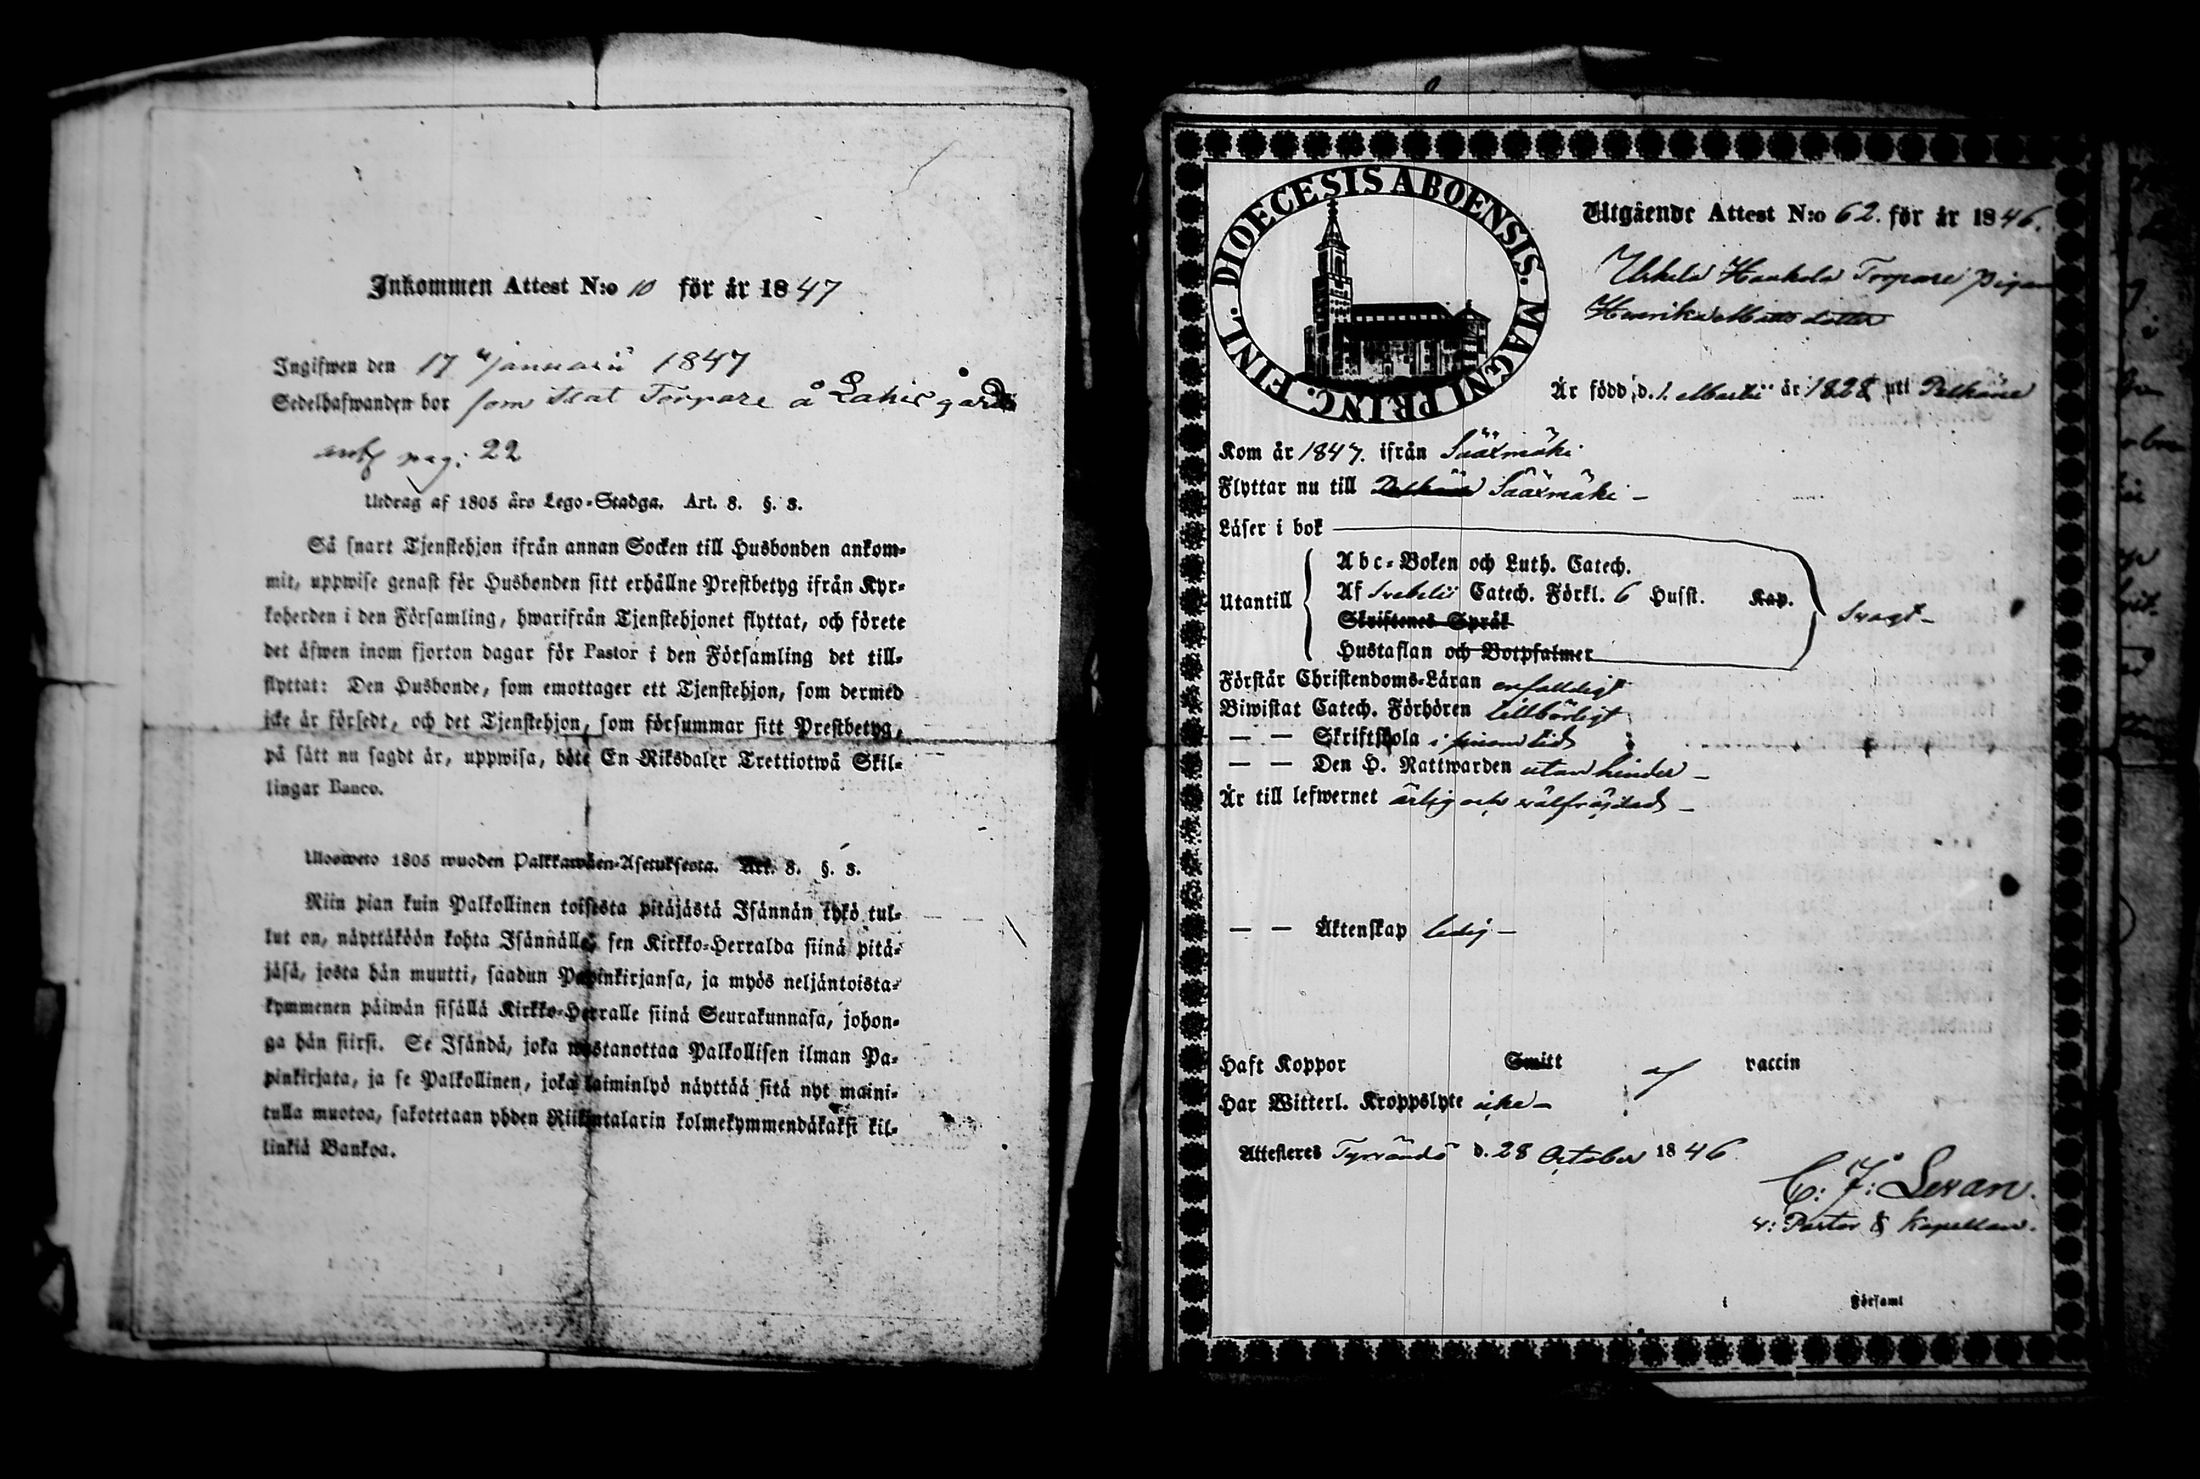 Inkommen Attest N:o 10 för år 1847
Ingifwen den 17 Januarii 1847
Sedelhafwanden bor som Stat Torpare å Lahis gård
pag: 22
Utdrag af 1805 års Lego-Stadga. Art. 8. §. 3.
Så snart Tjenstehjon ifrån annan Socken till Husbonden ankom-
mit, uppwise genast för Husbonden sitt erhållne Prestbetyg ifrån Kyr-
koherden i den Församling, hwarifrån Tjenstehjonet flyttat, och förete
det äfwen inom fjorton dagar för Pastor i den Församling det till-
flyttat: Den Husbonde, som emottager ett Tjenstehjon, som dermed
icke är försedt, och det Tjenstehjon, som försummar sitt Prestbetyg,
på sätt nu sagdt är, uppwisa, böte En Riksdaler Trettiotwå Skil-
lingar Banco.
Ulosweto 1805 wuoden Palkkawäen-Asetuksesta. Art. 8. §. 3.
Niin pian kuin Palkollinen toisesta pitäjästä Isännän tykö tul-
lut on, näyttäköön kohta Isännälle sen Kirkko-Herralda siinä pitä-
jäsä, josta hän muutti, saadun Papinkirjansa, ja myös neljäntoista-
kymmenen päiwän sisällä Kirkko-Herralle siinä Seurakunnasa, johon-
ga hän siirsi. Se Isändä, joka wastanottaa Palkollisen ilman Pa-
pinkirjata, ja se Palkollinen, joka laiminlyö näyttää sitä nyt maini-
tulla muotoa, sakotetaan yhden Riikintalarin kolmekymmendäkaksi kil-
linkiä Bankoa.
DIOECESIS ABOENSIS. MAGNI PRINC. FINL.
Utgående Attest N:o 62. för år 1846.
Urkela Haakola Torpare pigan
Henrika Mattsdotter
Är född d. 1. Martii år 1828 uti Pelkäne
Kom år 1847. ifrån Sääxmäki
Flyttar nu till Pelkäne Sääxmäki –
Läser i bok
Utantill
Abc-Boken och Luth. Catech.
Af Svebelii Catech. Förkl. 6 Husst. Kap.
Skriftenes Språk
Hustaflan och Botpsalmer
Svagt –
Förstår Christendoms-Läran enfaldigt
Biwistat Catech. Förhören tillbörligt
— — Skriftskola i sinom tid
— — Den H. Nattwarden utan hinder –
Är till lefwernet ärlig och välfrägdad –
— — Äktenskap ledig –
Haft Koppor Smitt af vaccin
Har Witterl. Kroppslyte icke –
Attesteres Tyrvändö d. 28 October 1846
C: J: Levan.
v: Pastor & Kapellan.
i Församl